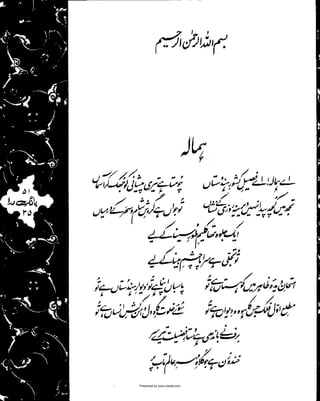 بسم اللہ الرحمن الرحیم
ہمالہ
اے ہمالہ! اے فصیلِ کشورِ ہندوستاں
چومتا ہے تیری پیشانی کو جھک کر آسماں
تجھ میں کچھ پیدا نہیں دیرینہ روزی کے نشاں
تو جواں ہے گردشِ شام و سحر کے درمیاں
ایک جلوہ تھا کلیمِ طورِ سینا کے لیے
تو تجلی ہے سراپا چشمِ بینا کے لیے
امتحانِ دیدۂ ظاہر میں کوہستاں ہے تو
پاسباں اپنا ہے تو، دیوارِ ہندوستاں ہے تو
مطلعِ اول فلک جس کا ہو وہ دیواں ہے تو
سوئے خلوت گاہِ دل دامن کشِ انساں ہے تو
برف نے باندھی ہے دستارِ فضیلت تیرے سر
خندہ زن ہے جو کلاہِ مہرِ عالم تاب پر
۵۱
بانگِ درا
۳۵
Presented by www.iqbalal.com